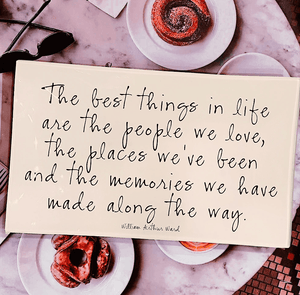 The best things in life
are the people we love,
the places we've been
and the memories we have
made along the way.
William Arthur Ward